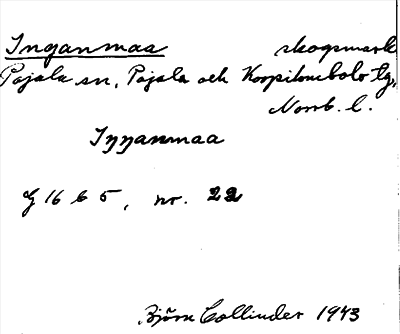 Inganmaa skogsmark
Pajala sn, Pajala och Korpilombolo tg,
Norrb. l.
Iŋŋanmaa
G 16 b 5, nr. 22
Björn Collinder 1943